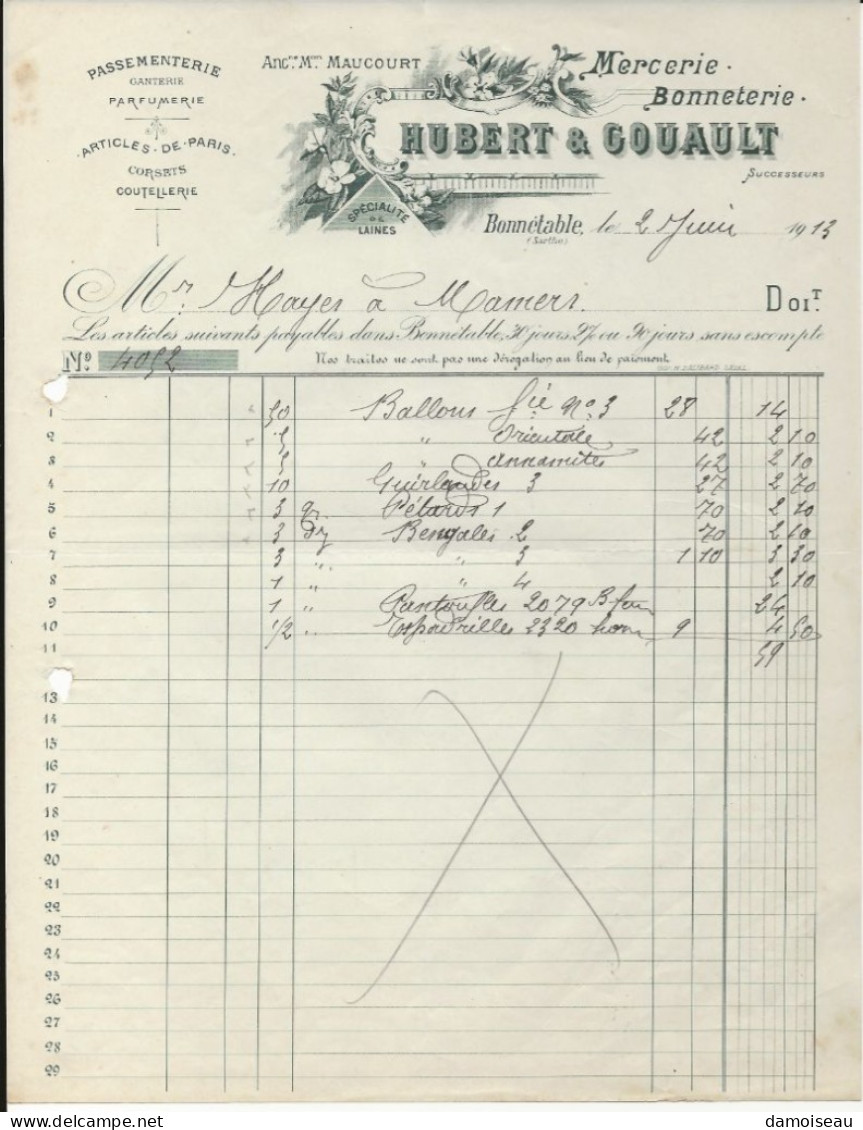 PASSEMENTERIE
GANTERIE
PARFUMERIE
ARTICLES-DE-PARIS.
CORSETS
COUTELLERIE
Anc.ne M.on MAUCOURT
Mercerie.
Bonneterie.
HUBERT & GOUAULT
SUCCESSEURS
SPÉCIALITÉ
DE
LAINES
Bonnétable, le 2 Juin 1913
(Sarthe)
Mr. Hayes à Mamers. DOIT.
Les articles suivants payables dans Bonnétable, 30 jours 2% ou 90 jours sans escompte
No 4092 Nos traites ne sont pas une dérogation au lieu de paiement
1 50 Ballons No 3 28 14
2 5 " Orientale 42 2 10
3 5 " Annamites 42 2 10
4 10 Guirlandes 3 27 2 70
5 3 gr Pétards 1 70 2 10
6 3 Dz Bengales 2 70 2 10
7 3 " " 3 1 10 3 30
8 1 " " 4 2 10
9 1 " Pantoufles 2079 24
10 1/2 " Espadrilles 2320 hom 9 4 50
11 59
13
14
15
16
17
18
19
20
21
22
23
24
25
26
27
28
29
damoiseau